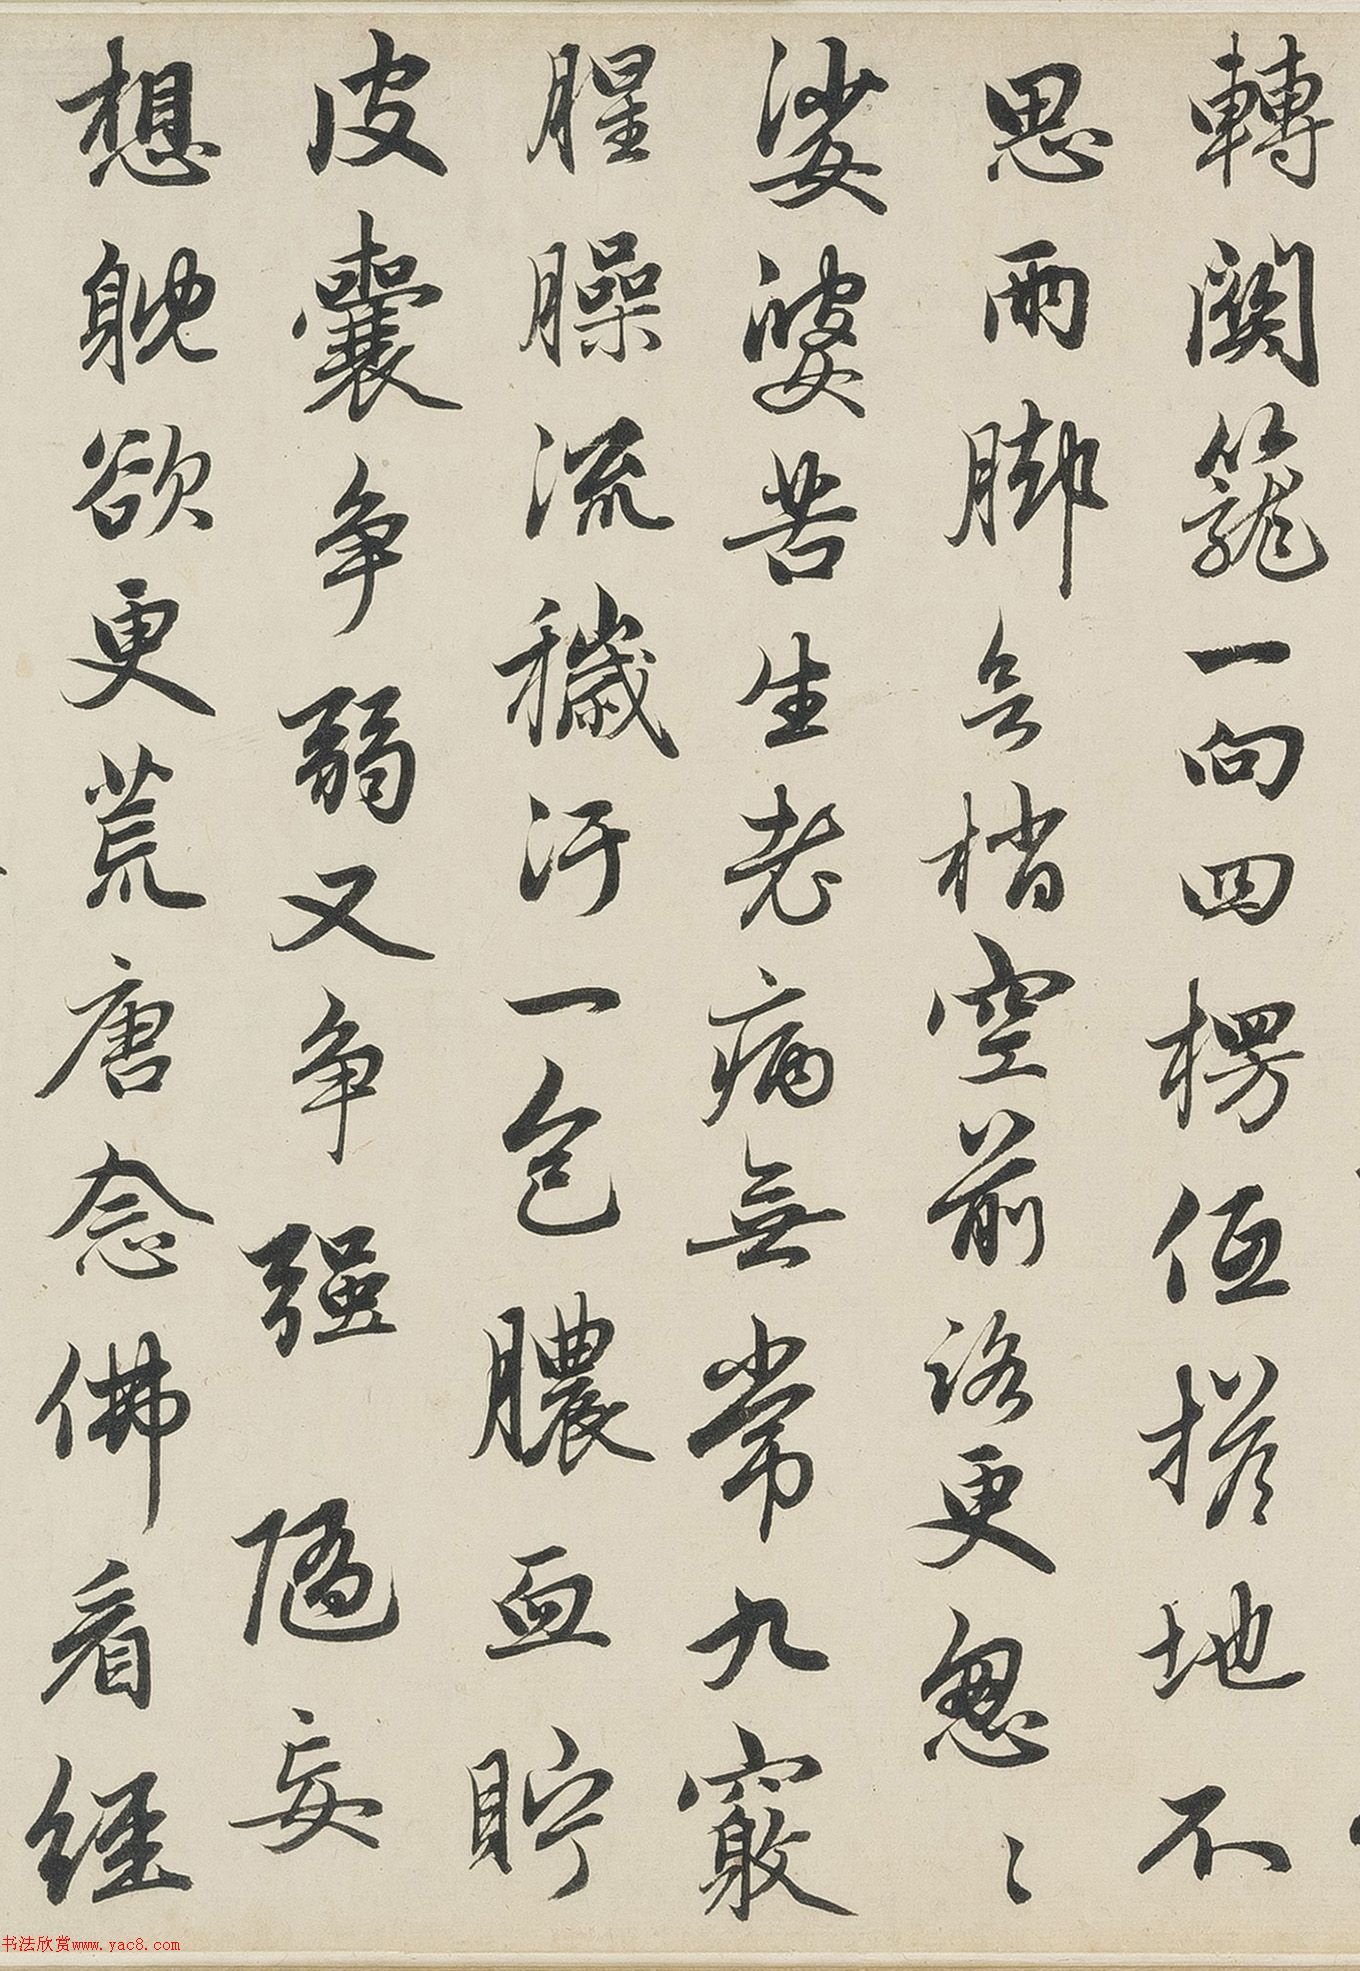 轉関籠一向四楞伍搭地不
思兩脚無梢空前路更忽〻
娑婆苦生老病無常九竅
腥臊流穢汙一包膿血貯
皮囊争弱又争强隨妄
想躭欲更荒唐念佛看經
书法欣赏www.yac8.com